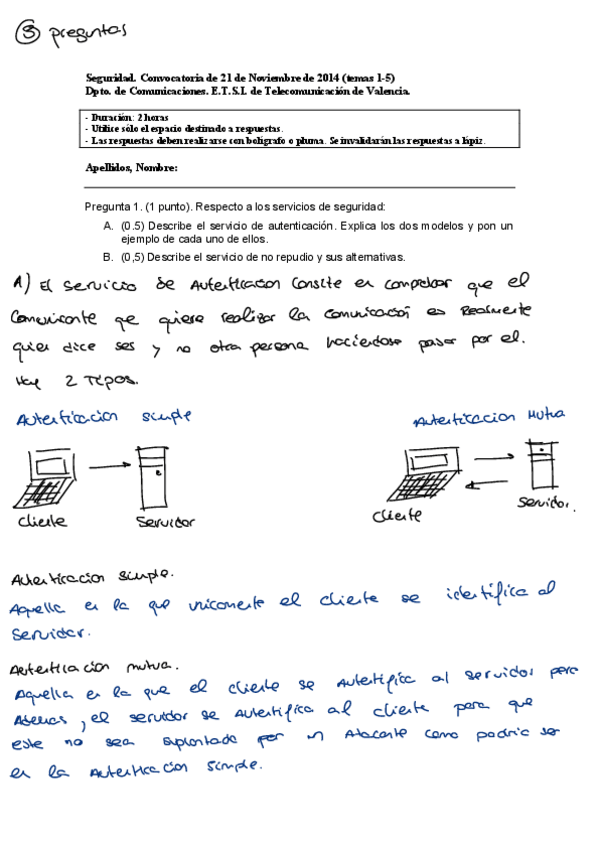 ③ preguntas
Seguridad. Convocatoria de 21 de Noviembre de 2014 (temas 1-5)
Dpto. de Comunicaciones. E.T.S.I. de Telecomunicación de Valencia.
- Duración: 2 horas
- Utilice sólo el espacio destinado a respuestas.
- Las respuestas deben realizarse con bolígrafo o pluma. Se invalidarán las respuestas a lápiz.
Apellidos, Nombre:
Pregunta 1. (1 punto). Respecto a los servicios de seguridad:
A. (0.5) Describe el servicio de autenticación. Explica los dos modelos y pon un
ejemplo de cada uno de ellos.
B. (0,5) Describe el servicio de no repudio y sus alternativas.
A) El servicio de Autentificacion consite en comprobar que el
comunicante que quiere realizar la comunicación es Realmente
quien dice ser y no otra persona haciendose pasar por el.
Hay 2 Tipos.
Autentificacion simple
Autentificacion Mutua
cliente
servidor
cliente
servidor.
Autentificacion simple.
Aquella en la que unicamente el cliente se identifica al
servidor.
Autentificacion mutua.
Aquella en la que el cliente se Autentifica al servidor pero
Ademas, el servidor se Autentifica al cliente para que
este no sea suplantado por un Atacante como podria ser
en la Autentificacion simple.